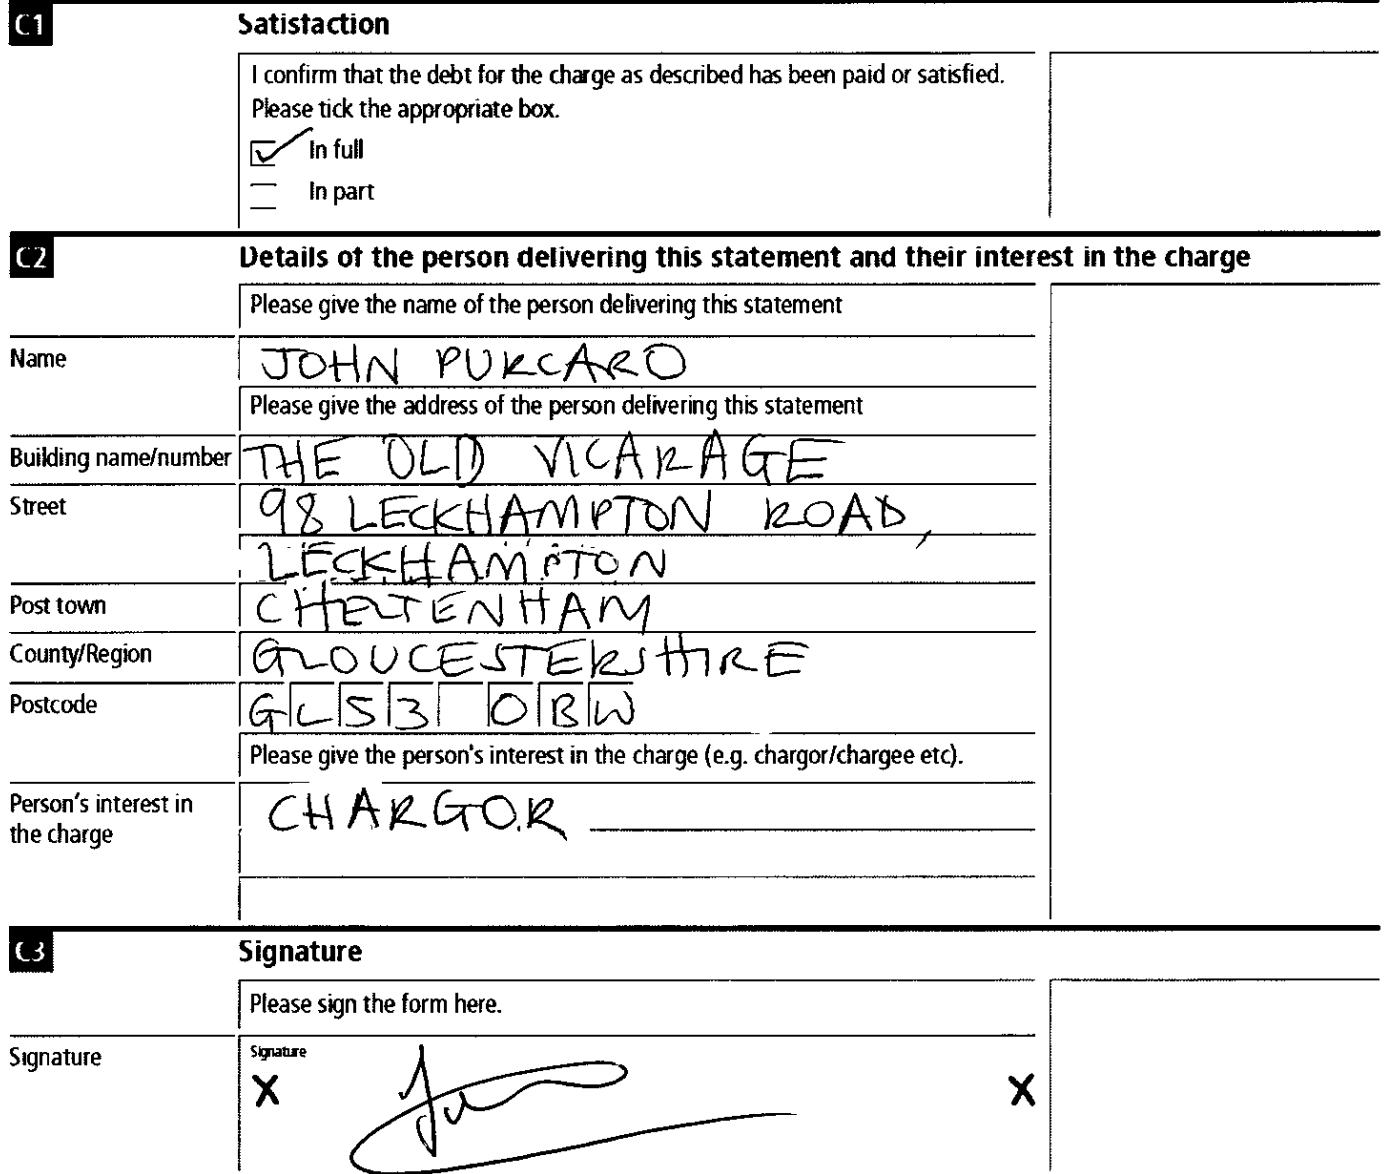 C1 Satisfaction
I confirm that the debt for the charge as described has been paid or satisfied.
Please tick the appropriate box.
In full
In part
C2 Details of the person delivering this statement and their interest in the charge
Please give the name of the person delivering this statement
Name JOHN PURCARO
Please give the address of the person delivering this statement
Building name/number THE OLD VICARAGE
Street 98 LECKHAMPTON ROAD,
LECKHAMPTON
Post town CHELTENHAM
County/Region GLOUCESTERSHIRE
Postcode GL53 0BW
Please give the person's interest in the charge (e.g. chargor/chargee etc).
Person's interest in CHARGOR
the charge
C3 Signature
Please sign the form here.
Signature Signature
X X